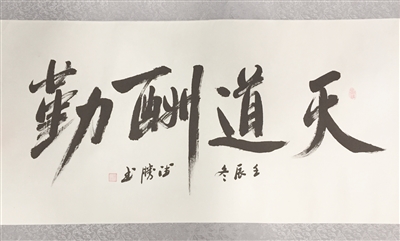 天道酬勤
壬辰冬